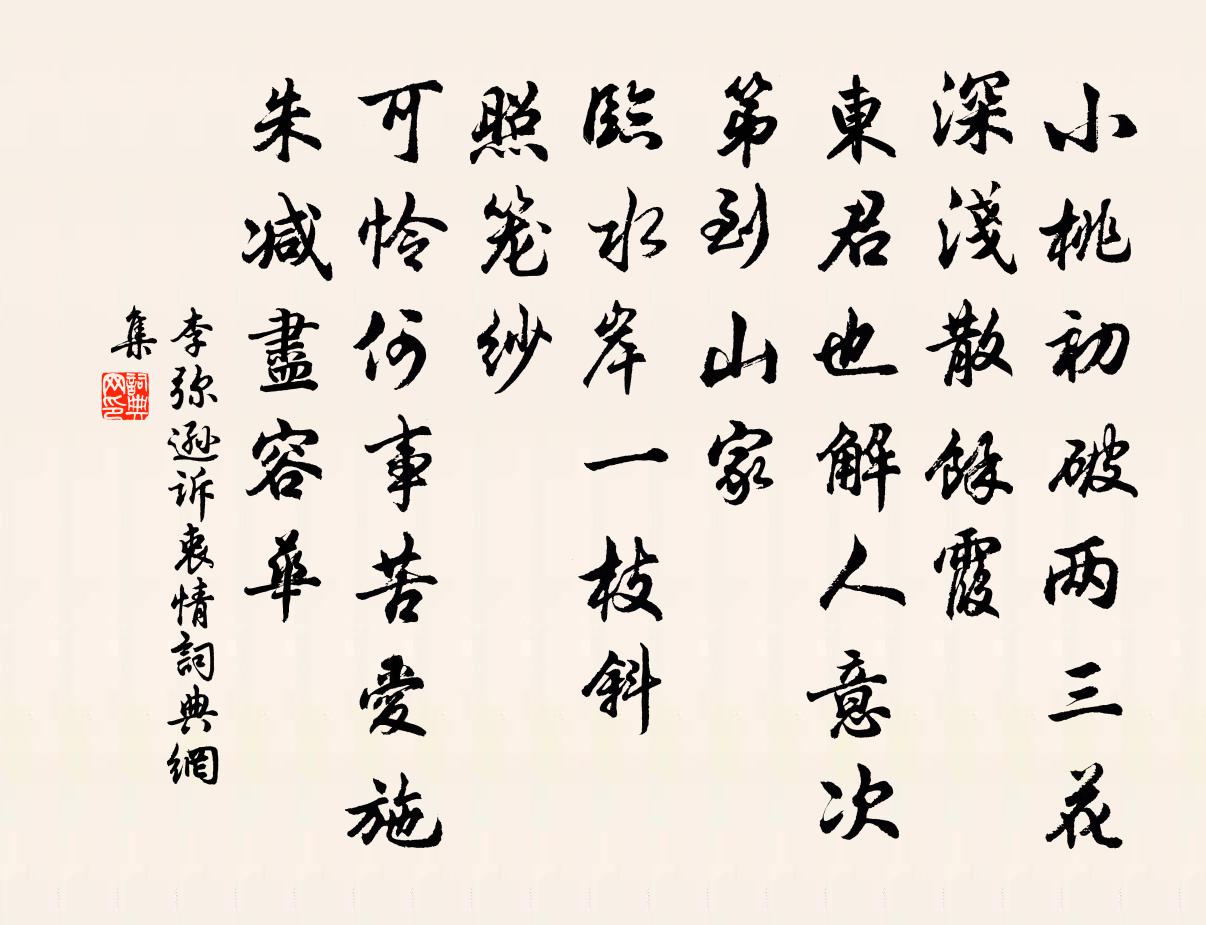 小桃初破两三花
深淺散餘霞
東君也解人意次
第到山家
臨水岸一枝斜
照笼紗
可怜何事苦愛施
朱减盡容華
李弥遜訴衷情詞典網
集
詞典网印